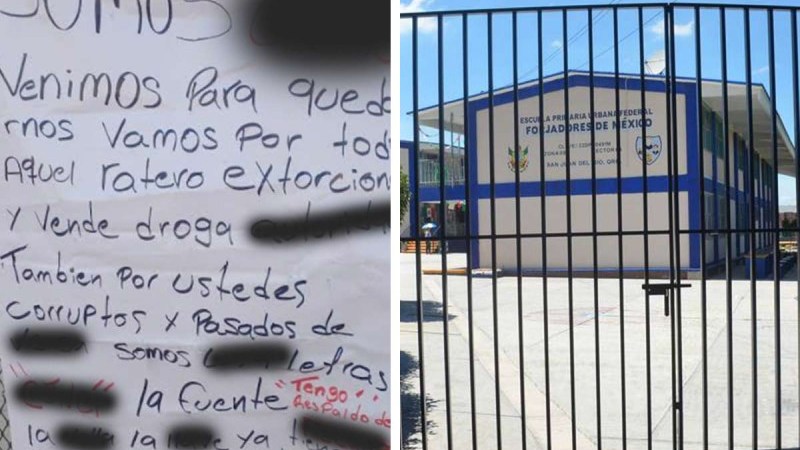 SOMOS
Venimos Para queda
rnos Vamos Por tod
Aquel ratero extorcion
y vende droga
Tambien Por ustedes
corruptos y Pasados de
somos letras
la fuente "Tengo"
Respaldo de
la la ya tien
ESCUELA PRIMARIA URBANA FEDERAL
FORJADORES DE MÉXICO
SAN JUAN DEL RIO, QRO.